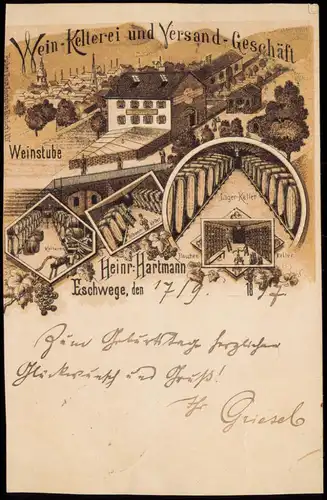 Wein-Kellerei und Versand-Geschäft
Weinstube
Lager-Keller
Flaschen Keller
Heinr. Hartmann
Eschwege, den 17/9. 1897
Zum Geburtstage herzlichen
Glückwunsch und Gruß!
Ihr Griesel